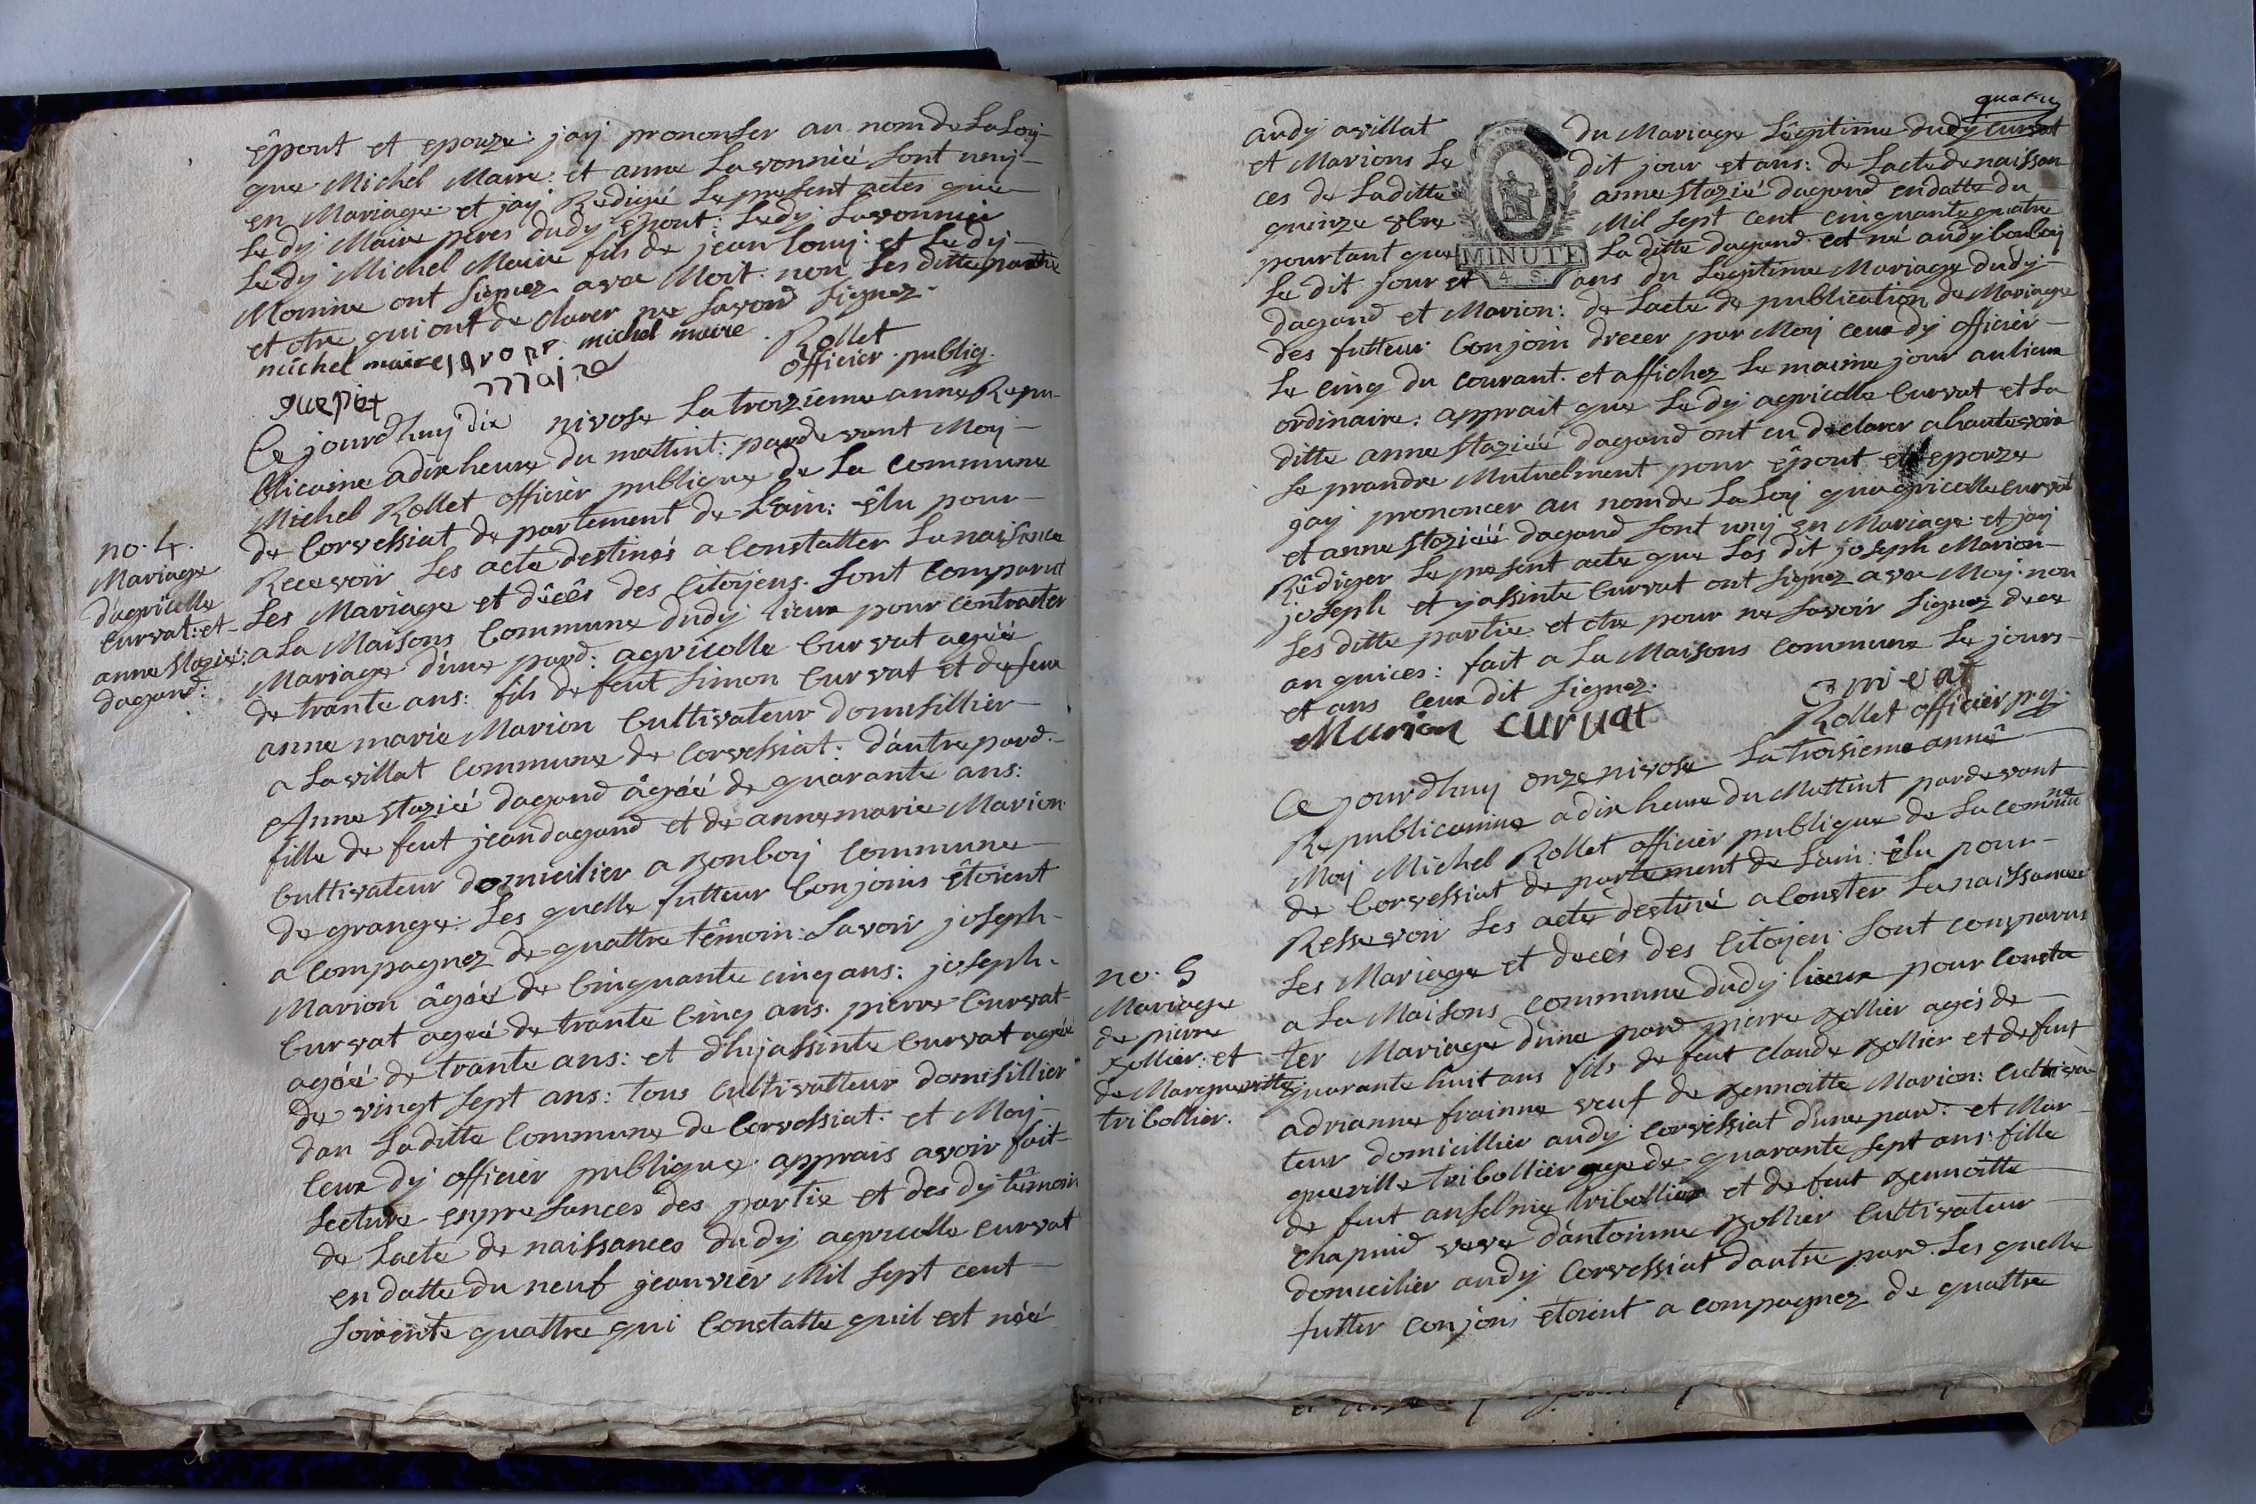 êpout et epouze: jay prononser au nom de La Loy
que Michel Maire: et anne Lavonnié sont unÿ
en Mariage et jay Redigé Le presént actes quie
Le dÿ Maire peres dudÿ êpout: Le dÿ Lavonnié
Le dÿ Michel Maire fils de jean louy: et Le dÿ
Monine ont signez ave Moit. non Les ditte partie
et otre qui ont de clarer ne savord signez.
michel maire michel maire Rollet
guepet maire officier publiq.
Ce jourdhuy dix nivose La troizieme anne Repu-
blicaine a dix heure du mattint: pardevant Moy
Michel Rollet officiér publique de La commune
de Corvessiat de partement de Lain: êlu pour
no. 4.
Mariage
dagricolle
curvat: et
anne Stazié:
dagand:
Recevoir Les acte destinés a Constatter La naissance
Les Mariage et décês des Citoÿens. sont comparut
a La Maisons Commune dudÿ lieux pour contracter
Mariage dúne pard: agricolle Curvat agéé
de trante ans: fils de feut Simon Curvat et de feue
anne marie Marion Cultivateur domisillier
a Lavillat commune de Corvessiat: dáutre pard.
Anne Stazié dagand âgéé de quarante ans:
fille de feut jean dagand et de anne marie Marion
Cultivateur domicilier a Bonboÿ Commune
de grange: Les quelle futteur Conjoins êtoient
a Compagnez de quattre têmoin: Savoir joseph
Marion âgéé de Cinquante cinq ans: joseph
Curvat agéé de trante Cinq ans. pierre Curvat
agéé de trante ans: et dhijassinte Curvat agéé
de vingt sept ans: tous cultivatteur domisillier
dan Laditte Commune de Corvessiat: et Moÿ
Ceux dÿ officier publique: apprais avoir fait
Lecture en presances des partie et des dÿ têmoin
de Lacte de naissances dudÿ agricolle curvat
en datte du neuf jeanviér Mil sept cent
soixente quattre qui Constatte quil est néé
quatre
audÿ avillat du Mariage Légitime dudÿ curvat
et Marions Le dit jour et ans: de Lacte de naissan
ces de Laditte anne stazié dagand en datte du
queinze xbre Mil sept cent cinquante quatre
pourtant que La ditte dagand est né audÿ bonboy
MINUTE
4 S.
Le dit jour et ans du Legitime Mariage dudÿ
dagand et Marion: de Lacte de publication de Mariage
des futteur Conjoin drecer par Moÿ ceux dÿ officiér
Le cinq du courant. et affichez Le maime jour au lieux
ordinaire: apprait que Le dÿ agricolle Curvat et La
ditte anne Staziéé dagand ont eu declarer a haute voix
se prandre Mutuelment pour êpout et epouze
jaÿ prononcer au nom de La Loÿ que agricolle curvat
et anne Staziéé dagand sont unÿ en Mariage et jaÿ
Rêdiger Le presént acte que Les dit joseph Marion
joseph et yassinte Curvat ont signez ave Moÿ. non
Les ditte partie et otre pour ne savoir signez de ce
an quices: fait a La Maisons commune Le jours
et ans ceux dit signez.
Marion curvat
Rollet officier pq.
Ce jourdhuy onze nivose La troisieme anné
Republicainne a dix heure du Mattint pardevant
Moÿ Michel Rollet officiér publique de La commune
de Corvessiat de partement de Lain: êlu pour
Ressevoir Les acte destiné a Conster La naissance
Les Mariage et decés des Citoÿen: sont comparus
no. 5
Mariage
de pierre
zollier: et
de Marguerittte
tribollier.
a La Maisons commune dudÿ lieux pour Contra
ter Mariage dune pard pierre zollier agés de
quarante huit ans fils de feut claude zollier et de feut
adrianne frainne veuf de zennoitte Marion: cultiva
teur domicillier audÿ corvessiat dune pard: et Mar
gueritte tribollier age de quarante sept ans: fille
de feut anselme tribollier et de feut zennoitte
chapuid veve dántoinne zollier Cultivateur
domicilier audÿ Corvessiat dautre pard. Les quelle
futter conjoins êtoient a compagnez de quattre